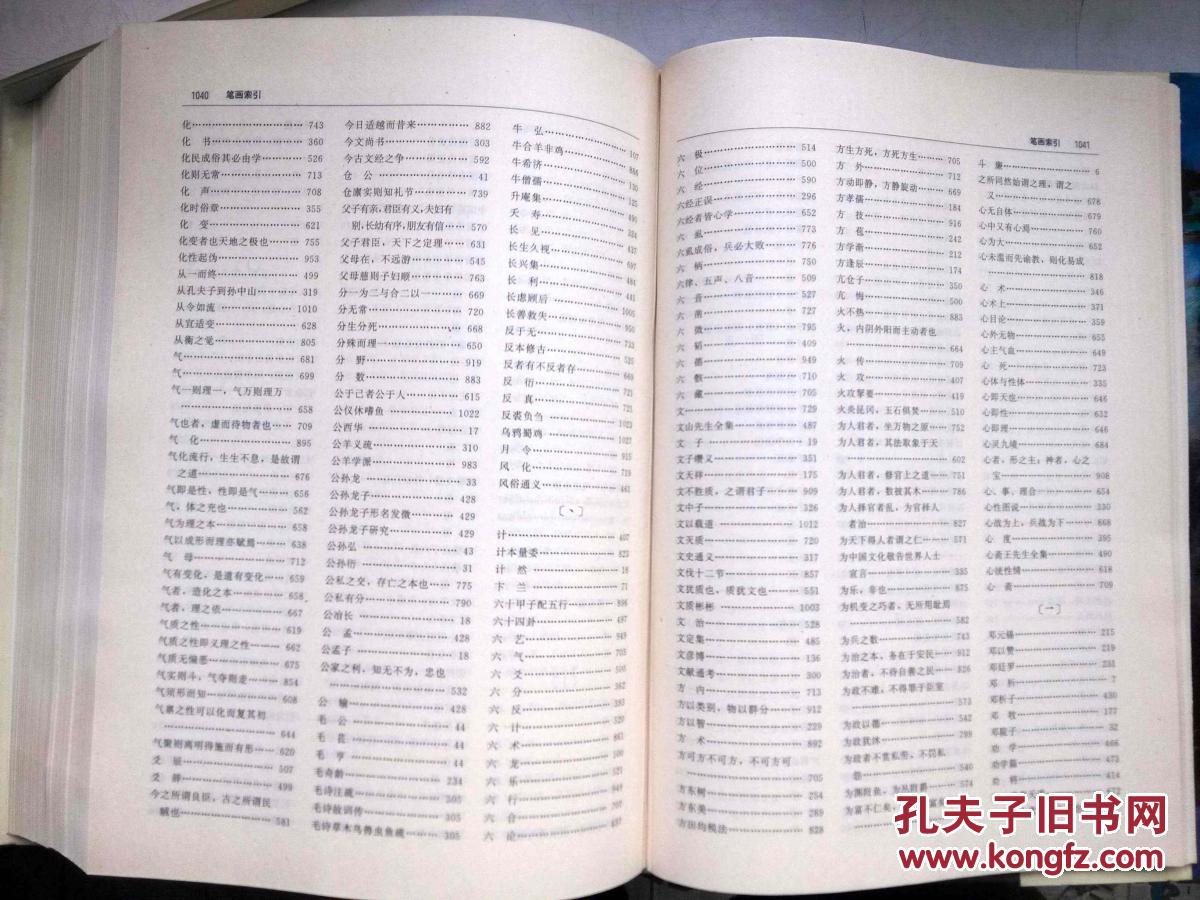 1040 笔画索引
化……743
化 书……360
化民成俗其必由学……526
化则无常……713
化 声……708
化时俗章……355
化 变……621
化变者也天地之极也……755
化性起伪……953
从一而终……499
从孔夫子到孙中山……319
从令如流……1010
从宜适变……628
从衡之觉……805
气……681
气……699
气一则理一，气万则理万
……658
气也者，虚而待物者也……709
气 化……895
气化流行，生生不息，是故谓
之道……676
气即是性，性即是气……656
气，体之充也……562
气为理之本……658
气以成形而理亦赋焉……638
气 母……712
气有变化，是道有变化……659
气者，造化之本……658
气者，理之依……667
气质之性……619
气质之性即义理之性……662
气质无偏恶……675
气实则斗，气夺则走……854
气须形而知……608
气禀之性可以化而复其初
……644
气聚则离明得施而有形……620
爻 辰……507
爻 辞……499
今之所谓良臣，古之所谓民
贼也……581
今日适越而昔来……882
今文尚书……303
今古文经之争……592
仓 公……41
仓廪实则知礼节……739
父子有亲，君臣有义，夫妇有
别，长幼有序，朋友有信……570
父子君臣，天下之定理……631
父母在，不远游……545
父母慈则子妇顺……763
分一为二与合二以一……669
分无常……720
分生分死……668
分殊而理一……650
分 野……919
分 数……883
公于己者公于人……615
公仪休嗜鱼……1022
公西华……17
公羊义疏……310
公羊学派……983
公孙龙……33
公孙龙子……428
公孙龙子形名发微……429
公孙龙子研究……429
公孙弘……43
公孙衍……31
公私之交，存亡之本也……775
公私有分……790
公冶长……18
公 孟……428
公孟子……18
公家之利，知无不为，忠也
……532
公 输……428
毛 公……44
毛 苌……44
毛 亨……44
毛奇龄……234
毛诗注疏……305
毛诗故训传……305
毛诗草木鸟兽虫鱼疏……305
牛 弘……107
牛合羊非鸡……886
牛希济……130
牛僧孺……125
升庵集……495
夭 寿……534
长 见……437
长生久视……697
长兴集……484
长 利……441
长虑顾后……1005
长善救失……950
反于无……733
反本修古……525
反者有不反者存……669
反 衍……721
反 真……721
反裘负刍……1023
乌鸦蜀鸡……1027
月 令……915
风 化……719
风俗通义……461
〔丶〕
计……407
计本量委……823
计 然……18
卞 兰……71
六十甲子配五行……896
六十四卦……497
六 艺……949
六 气……703
六 爻……500
六 分……362
六 反……393
六 计……807
六 术……861
六 龙……500
六 乐……507
六 行……949
六 合……707
六 论……437
笔画索引 1041
六 极……514
六 位……500
六 经……590
六经正误……296
六经者皆心学……652
六 虱……773
六虱成俗，兵必大败……776
六 柄……750
六律、五声、八音……509
六 音……527
六 凿……727
六 微……795
六 韬……409
六 德……949
六 骸……710
六 藏……705
文……729
文山先生全集……487
文 子……19
文子缵义……351
文天祥……175
文不胜质，之谓君子……909
文中子……326
文以载道……1012
文天质……707
文史通义……317
文伐十二节……857
文犹质也，质犹文也……551
文质彬彬……1003
文 治……528
文定集……485
文彦博……136
文献通考……300
方 内……713
方以类别，物以群分……912
方以智……229
方 术……892
方可方不可方，不可方可
……705
方东树……254
方东美……289
方田均税法……828
方生方死，方死方生……705
方 外……712
方动即静，方静旋动……669
方孝孺……184
方 技……916
方 苞……242
方学渐……212
方逢辰……174
亢仓子……350
亢 悔……500
火不热……883
火，内阴外阳而主动者也
……664
火 传……709
火 攻……407
火攻挈要……419
火炎昆冈，玉石俱焚……510
为人君者，坐万物之原……752
为人君者，其法取象于天
……602
为人君者，修官上之道……751
为人君者，数披其木……786
为人择官者乱，为官择人
者治……827
为天下得人者谓之仁……571
为中国文化敬告世界人士
宣言……335
为乐，非也……543
为机变之巧者，无所用耻焉
为兵之数……743
为治之本，务在于安民……912
为治者，不待自善之民……826
为政不难，不得罪于巨室
……573
为政以德……542
为政犹沐……299
为政者不赏私劳，不罚私
怨……574
为渊驱鱼，为丛驱爵……
为富不仁矣，
斗 廉……6
之所同然始谓之理，谓之
义……678
心无自体……679
心中又有心焉……760
心为大……652
心未滥而先谕教，则化易成
……818
心 术……346
心术上……371
心日论……359
心外无物……655
心主气血……649
心 死……723
心体与性体……335
心即天也……646
心即性……632
心即理……646
心灵九境……684
心者，形之主；神者，心之
宝……908
心、事、理合……654
心性图说……330
心战为上，兵战为下……868
心 度……395
心斋王先生全集……490
心统性情……618
心 斋……709
〔一〕
邓元锡……215
邓以赞……217
邓廷罗……231
邓 析……7
邓析子……430
邓 牧……177
邓陵子……32
劝 学……466
劝学篇……473
劝 将……414
孔夫子旧书网
www.kongfz.com